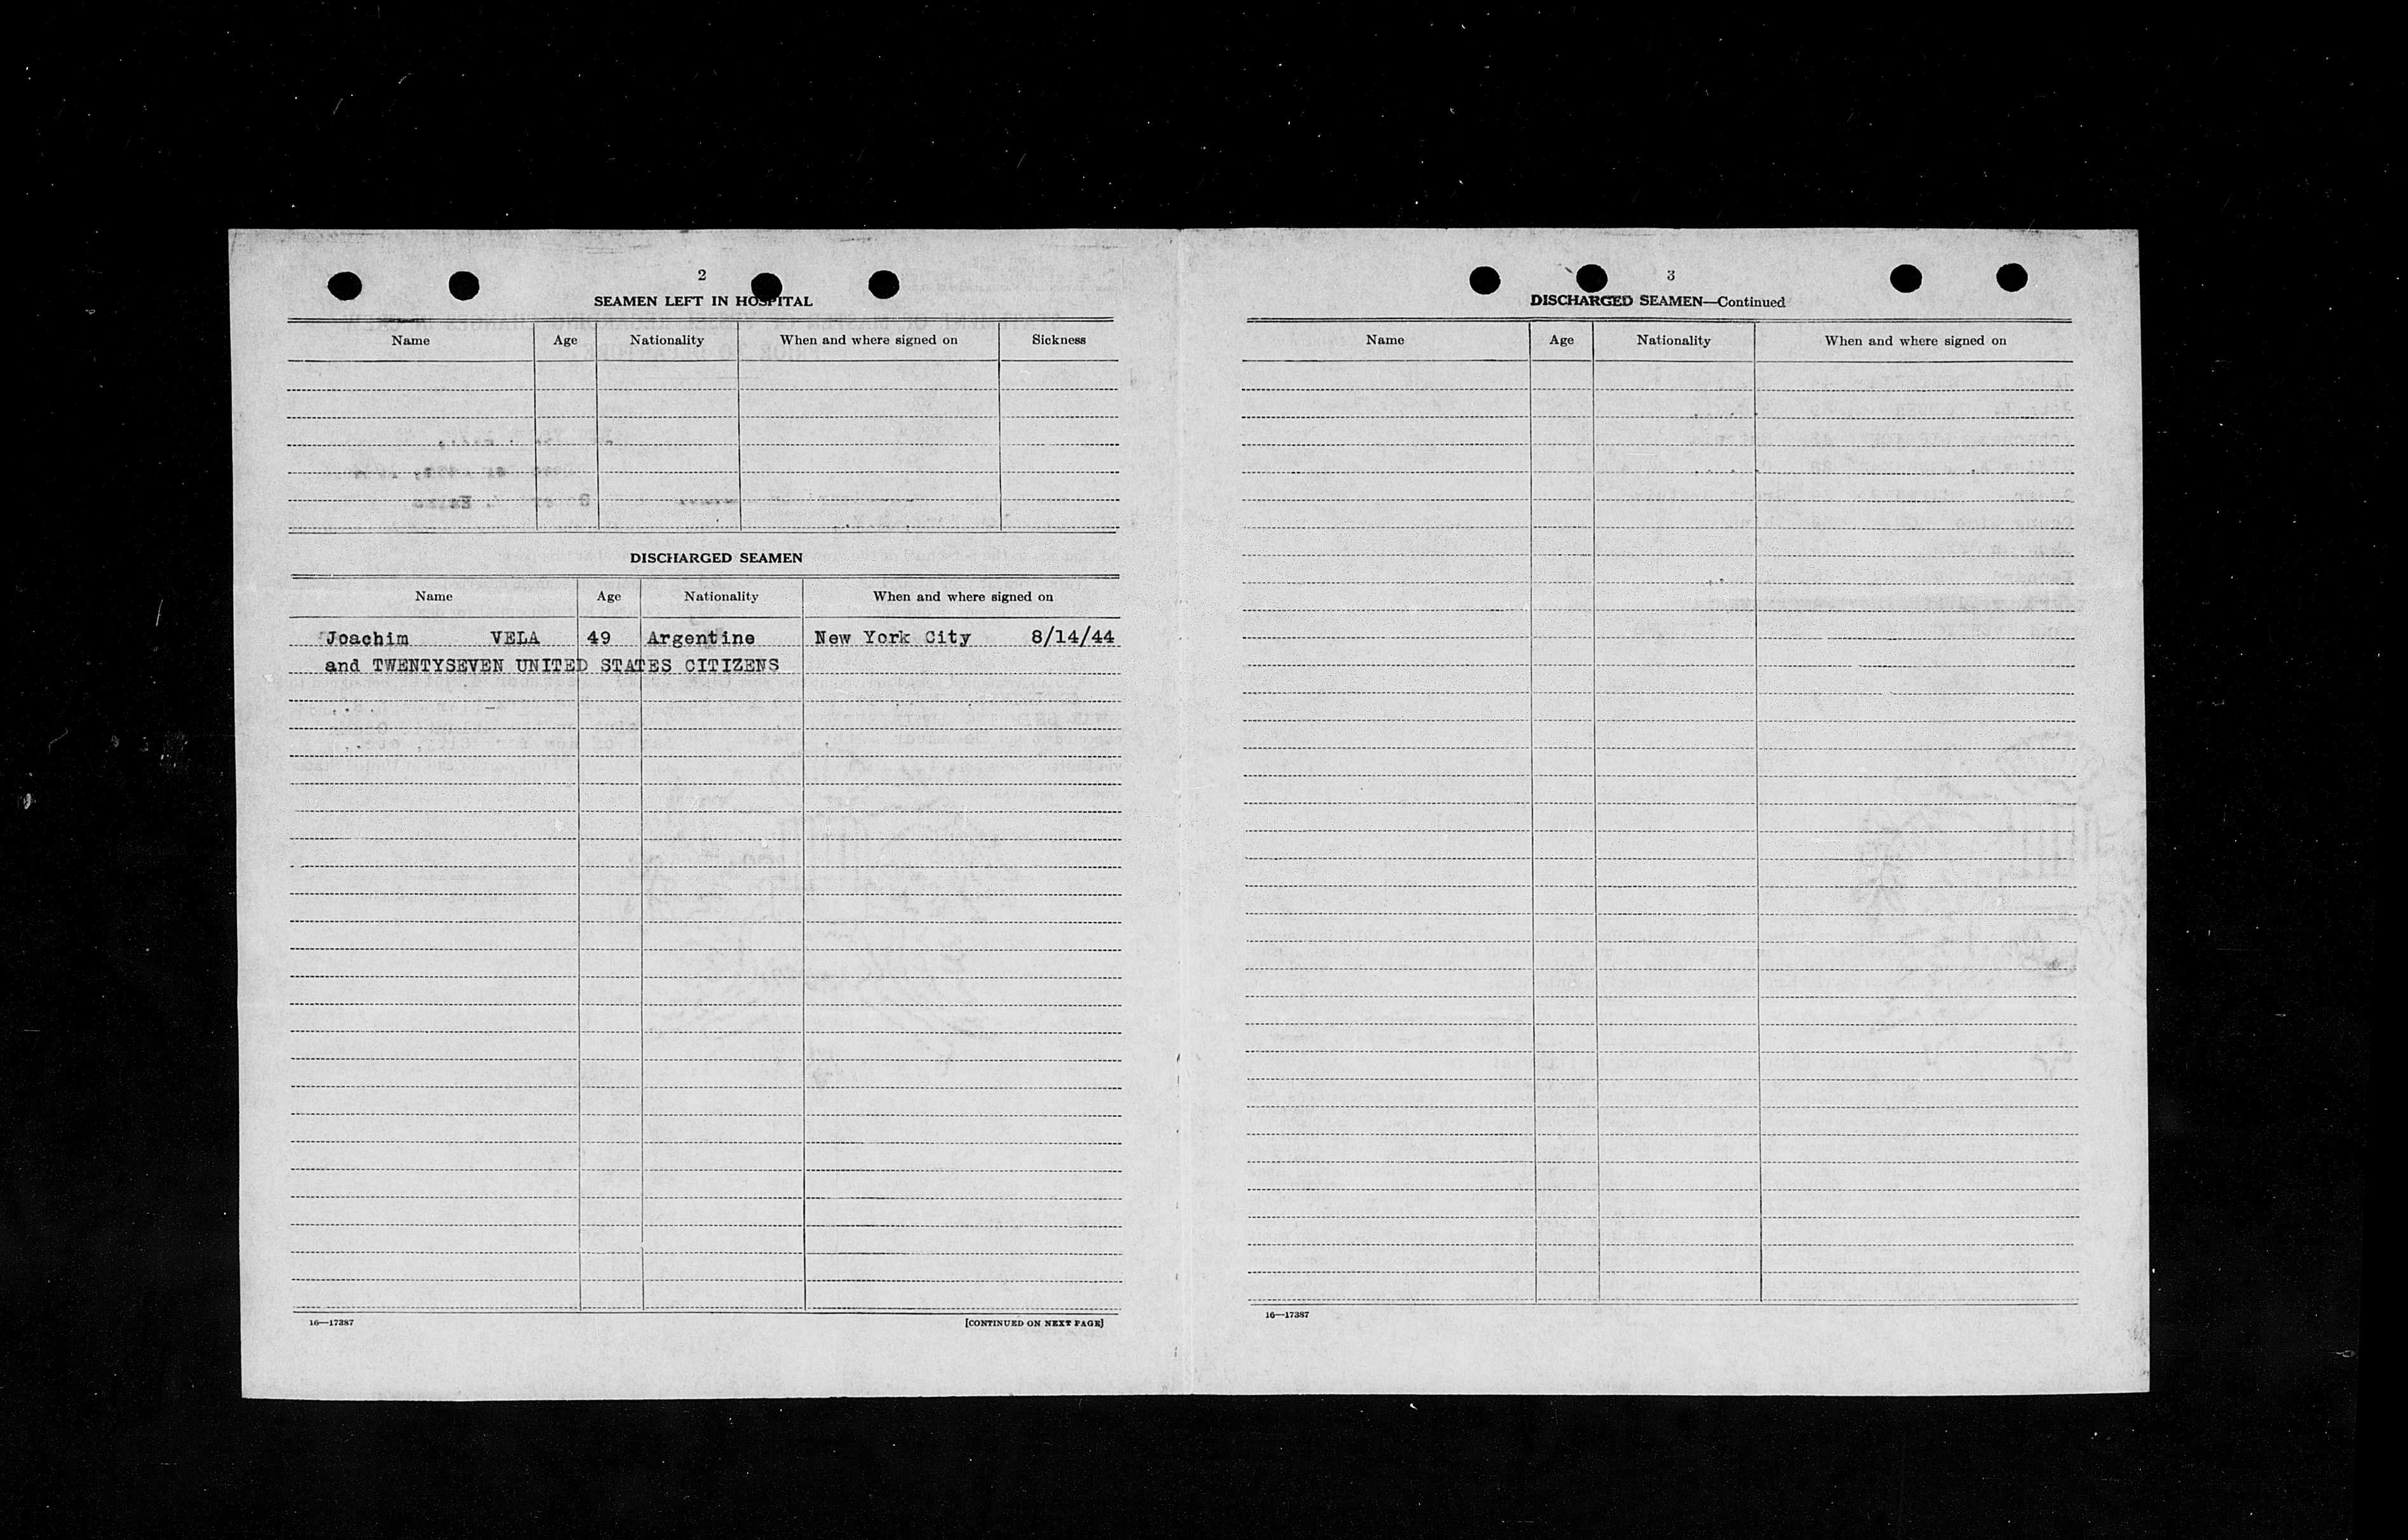 2
SEAMEN LEFT IN HOSPITAL
Name Age Nationality When and where signed on Sickness
DISCHARGED SEAMEN
Name Age Nationality When and where signed on
Joachim VELA 49 Argentine New York City 8/14/44
and TWENTYSEVEN UNITED STATES CITIZENS
16—17387 [CONTINUED ON NEXT PAGE]
3
DISCHARGED SEAMEN—Continued
Name Age Nationality When and where signed on
16—17387